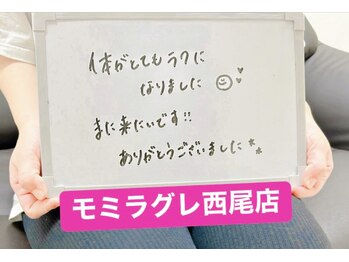 体がとてもラクに
なりました
また来たいです!!
ありがとうございました
モミラグレ西尾店